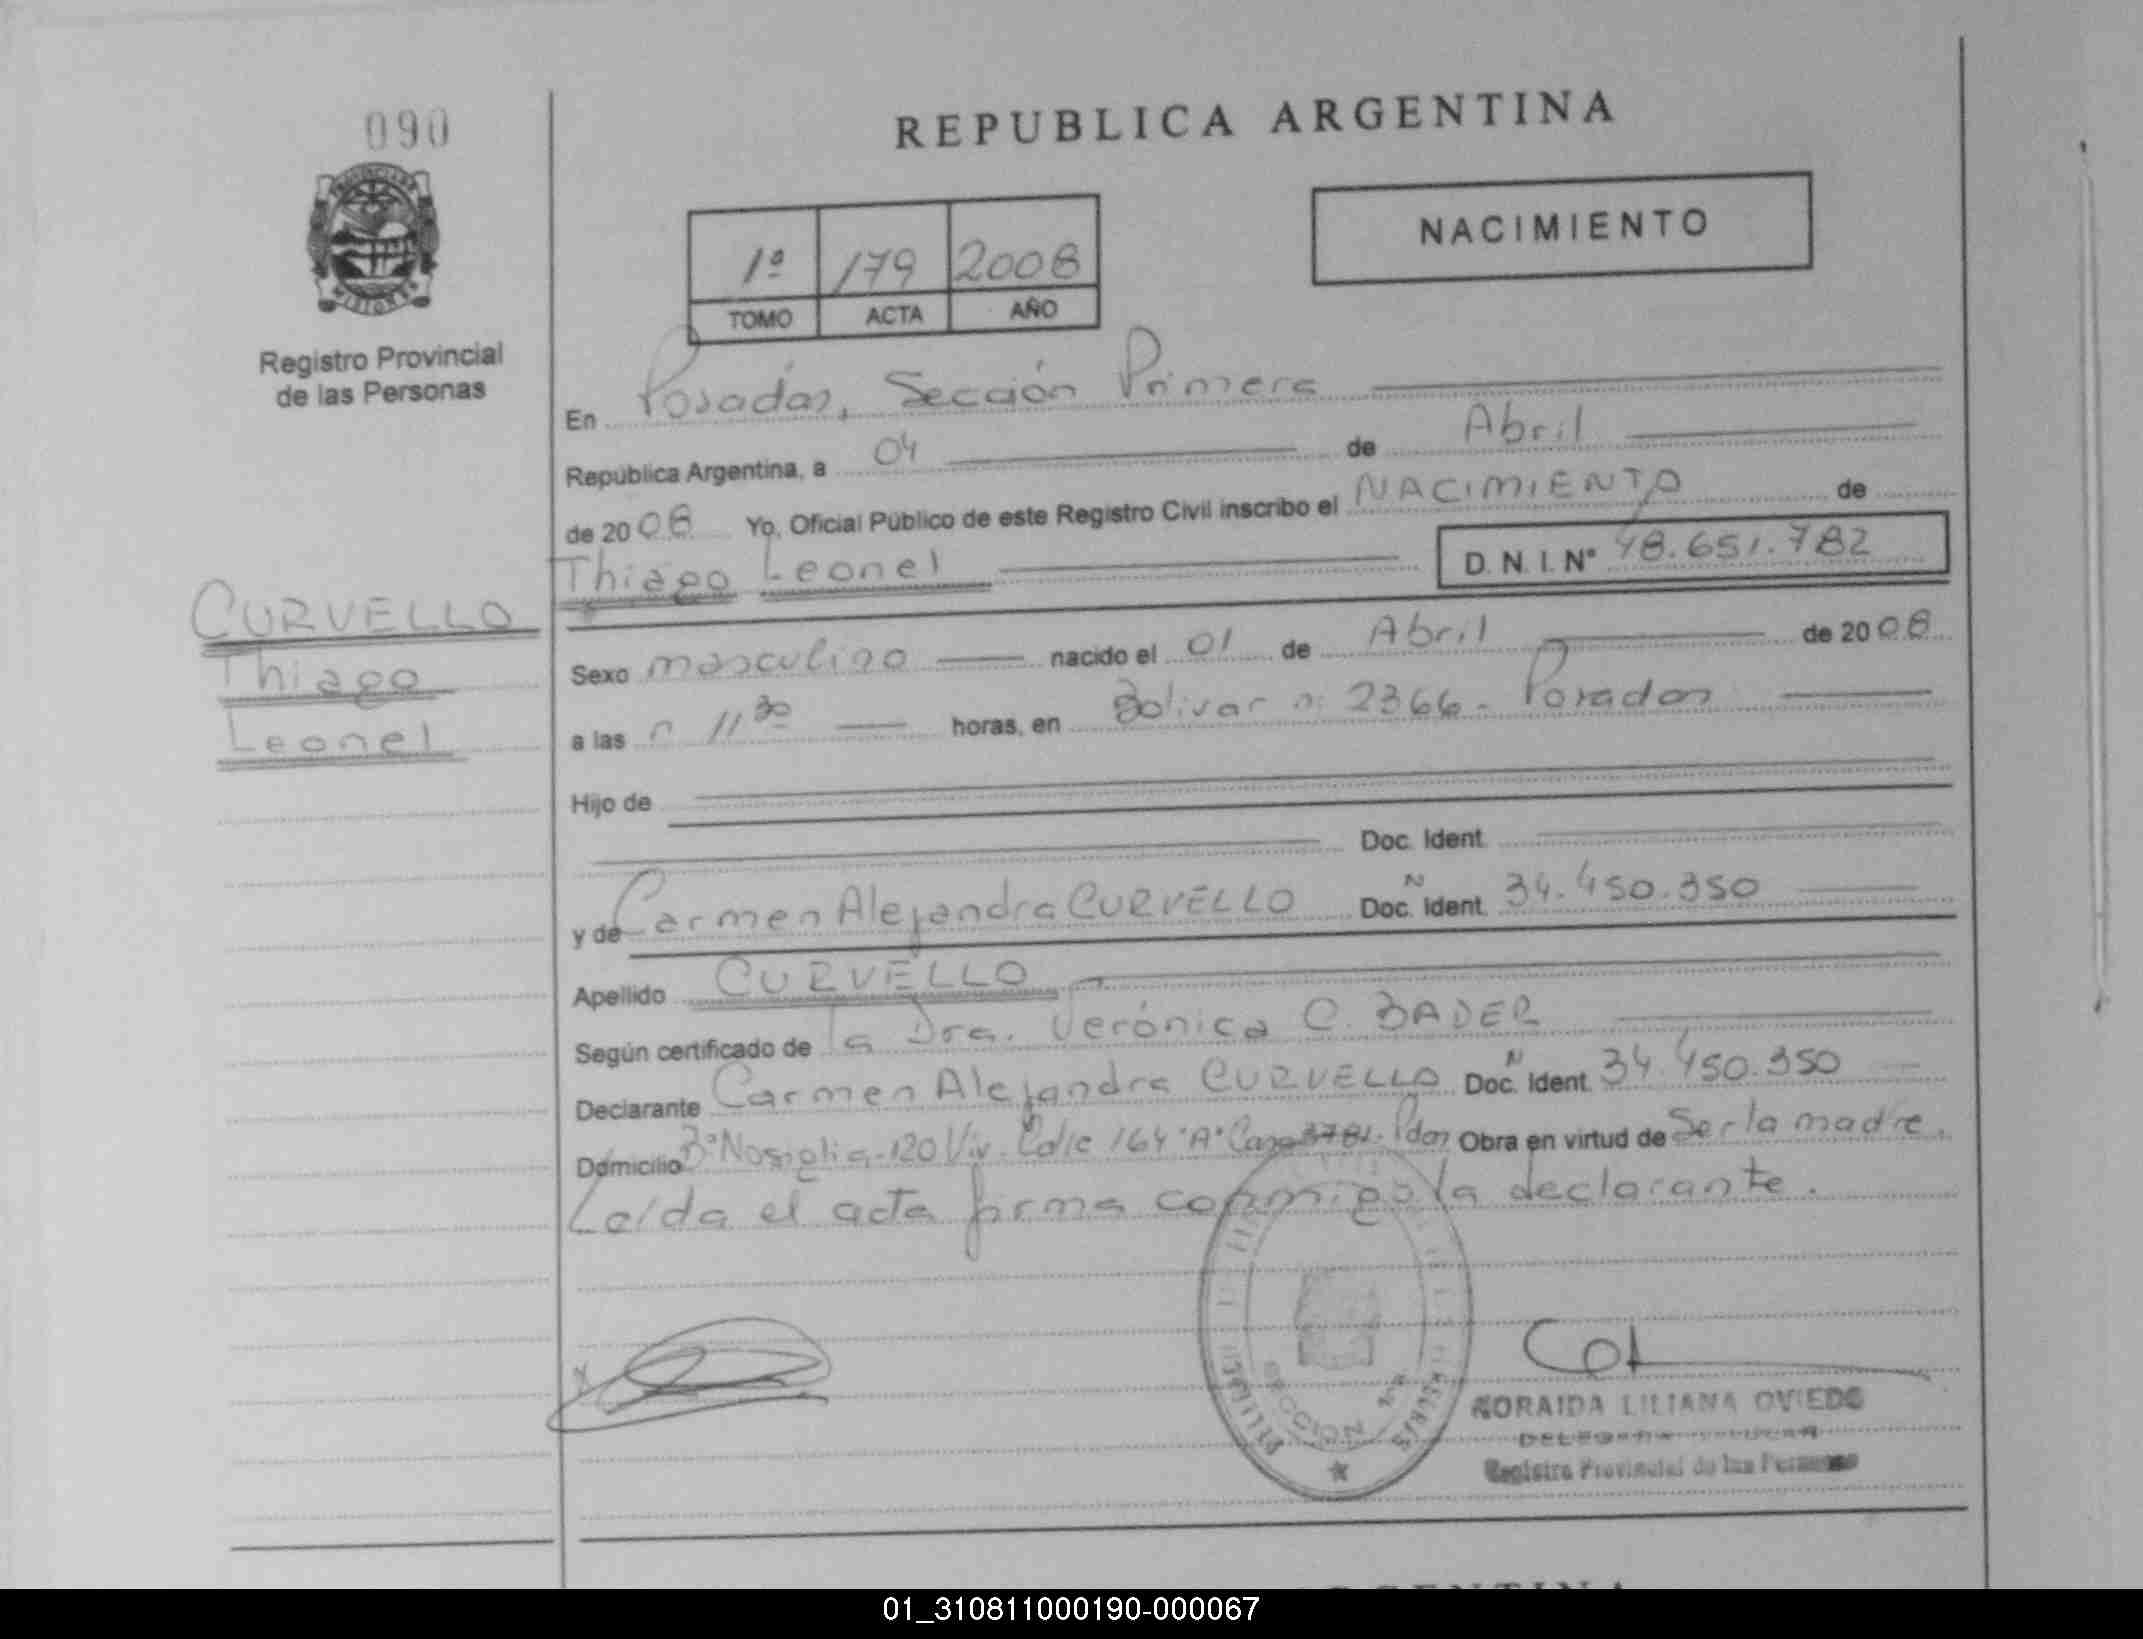 090
REPUBLICA ARGENTINA
NACIMIENTO
1º 179 2008
TOMO ACTA AÑO
MISIONES
Registro Provincial
de las Personas
En Posadas, Sección Primera
República Argentina, a 04 de Abril
de 2008 Yo, Oficial Público de este Registro Civil inscribo el NACIMIENTO de
Thiago Leonel D. N. I. Nº 48.651.782
CURVELLO
Thiago
Leonel
Sexo masculino nacido el 01 de Abril de 2008
a las 11 30 horas, en Bolivar n: 2366 - Posadas
Hijo de
Doc. Ident.
y de Carmen Alejandra CURVELLO Doc. Ident. N 34.450.350
Apellido CURVELLO
Según certificado de la Dra. Verónica C. BADER
Declarante Carmen Alejandra CURVELLO Doc. Ident. N 34.450.350
Domicilio Bº Nosiglia - 120 Viv. Calle 164 "A" Casa 3781 - Pdas Obra en virtud de Ser la madre.
Leída el acta firma conmigo la declarante.
SECCION
SORAIDA LILIANA OVIEDO
Registro Provincial de las Personas
01_310811000190-000067